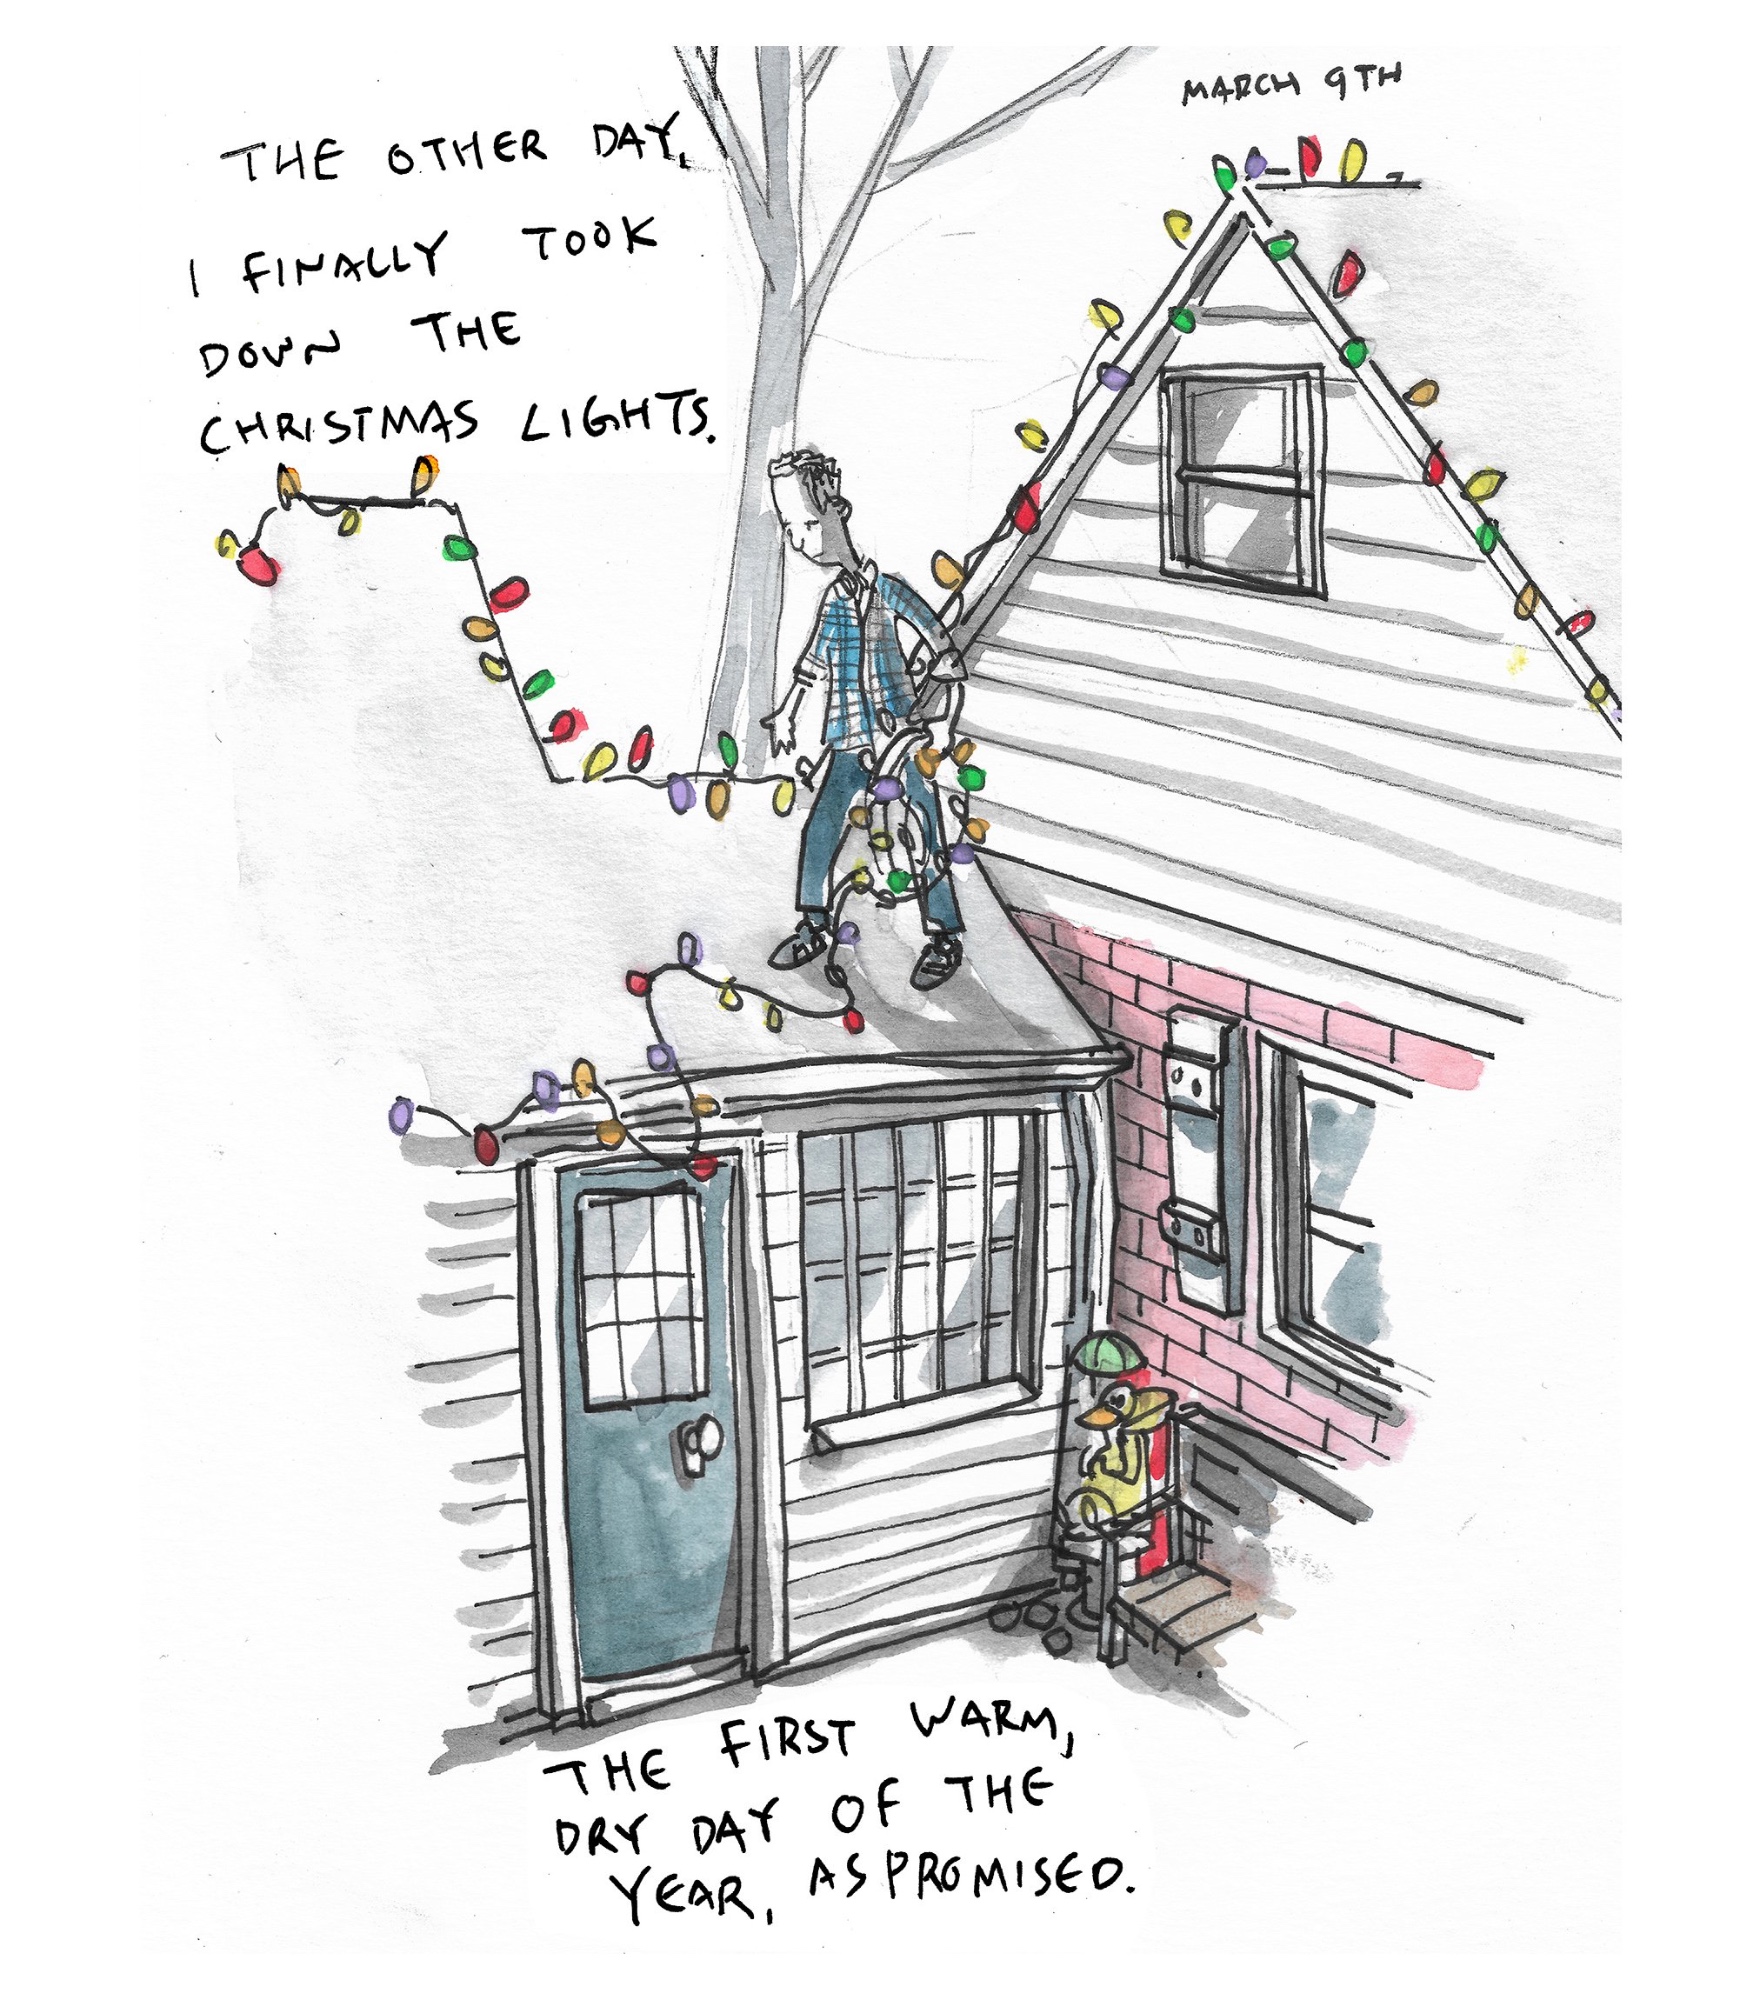 MARCH 9TH
THE OTHER DAY,
I FINALLY TOOK
DOWN THE
CHRISTMAS LIGHTS.
THE FIRST WARM,
DRY DAY OF THE
YEAR, AS PROMISED.